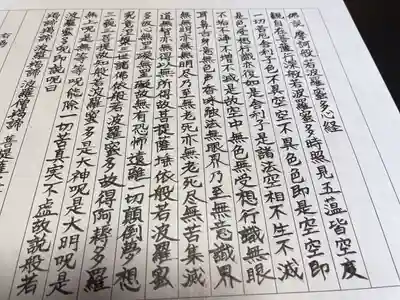 佛説摩訶般若波羅蜜多心経
観自在菩薩行深般若波羅蜜多時照見五蘊皆空度
一切苦厄舎利子色不異空空不異色色即是空空即
是色受想行識亦復如是舎利子是諸法空相不生不滅
不垢不浄不増不減是故空中無色無受想行識無眼
耳鼻舌身意無色声香味触法無眼界乃至無意識界
無無明亦無無明尽乃至無老死亦無老死尽無苦集滅
道無智亦無得以無所得故菩提薩埵依般若波羅蜜
多故心無罣礙無罣礙故無有恐怖遠離一切顛倒夢想
究竟涅槃三世諸佛依般若波羅蜜多故得阿耨多羅
三藐三菩提故知般若波羅蜜多是大神呪是大明呪是
無上呪是無等等呪能除一切苦真実不虚故説般若
波羅蜜多呪即説呪曰
羯諦羯諦波羅羯諦波羅僧羯諦 菩提薩
右為